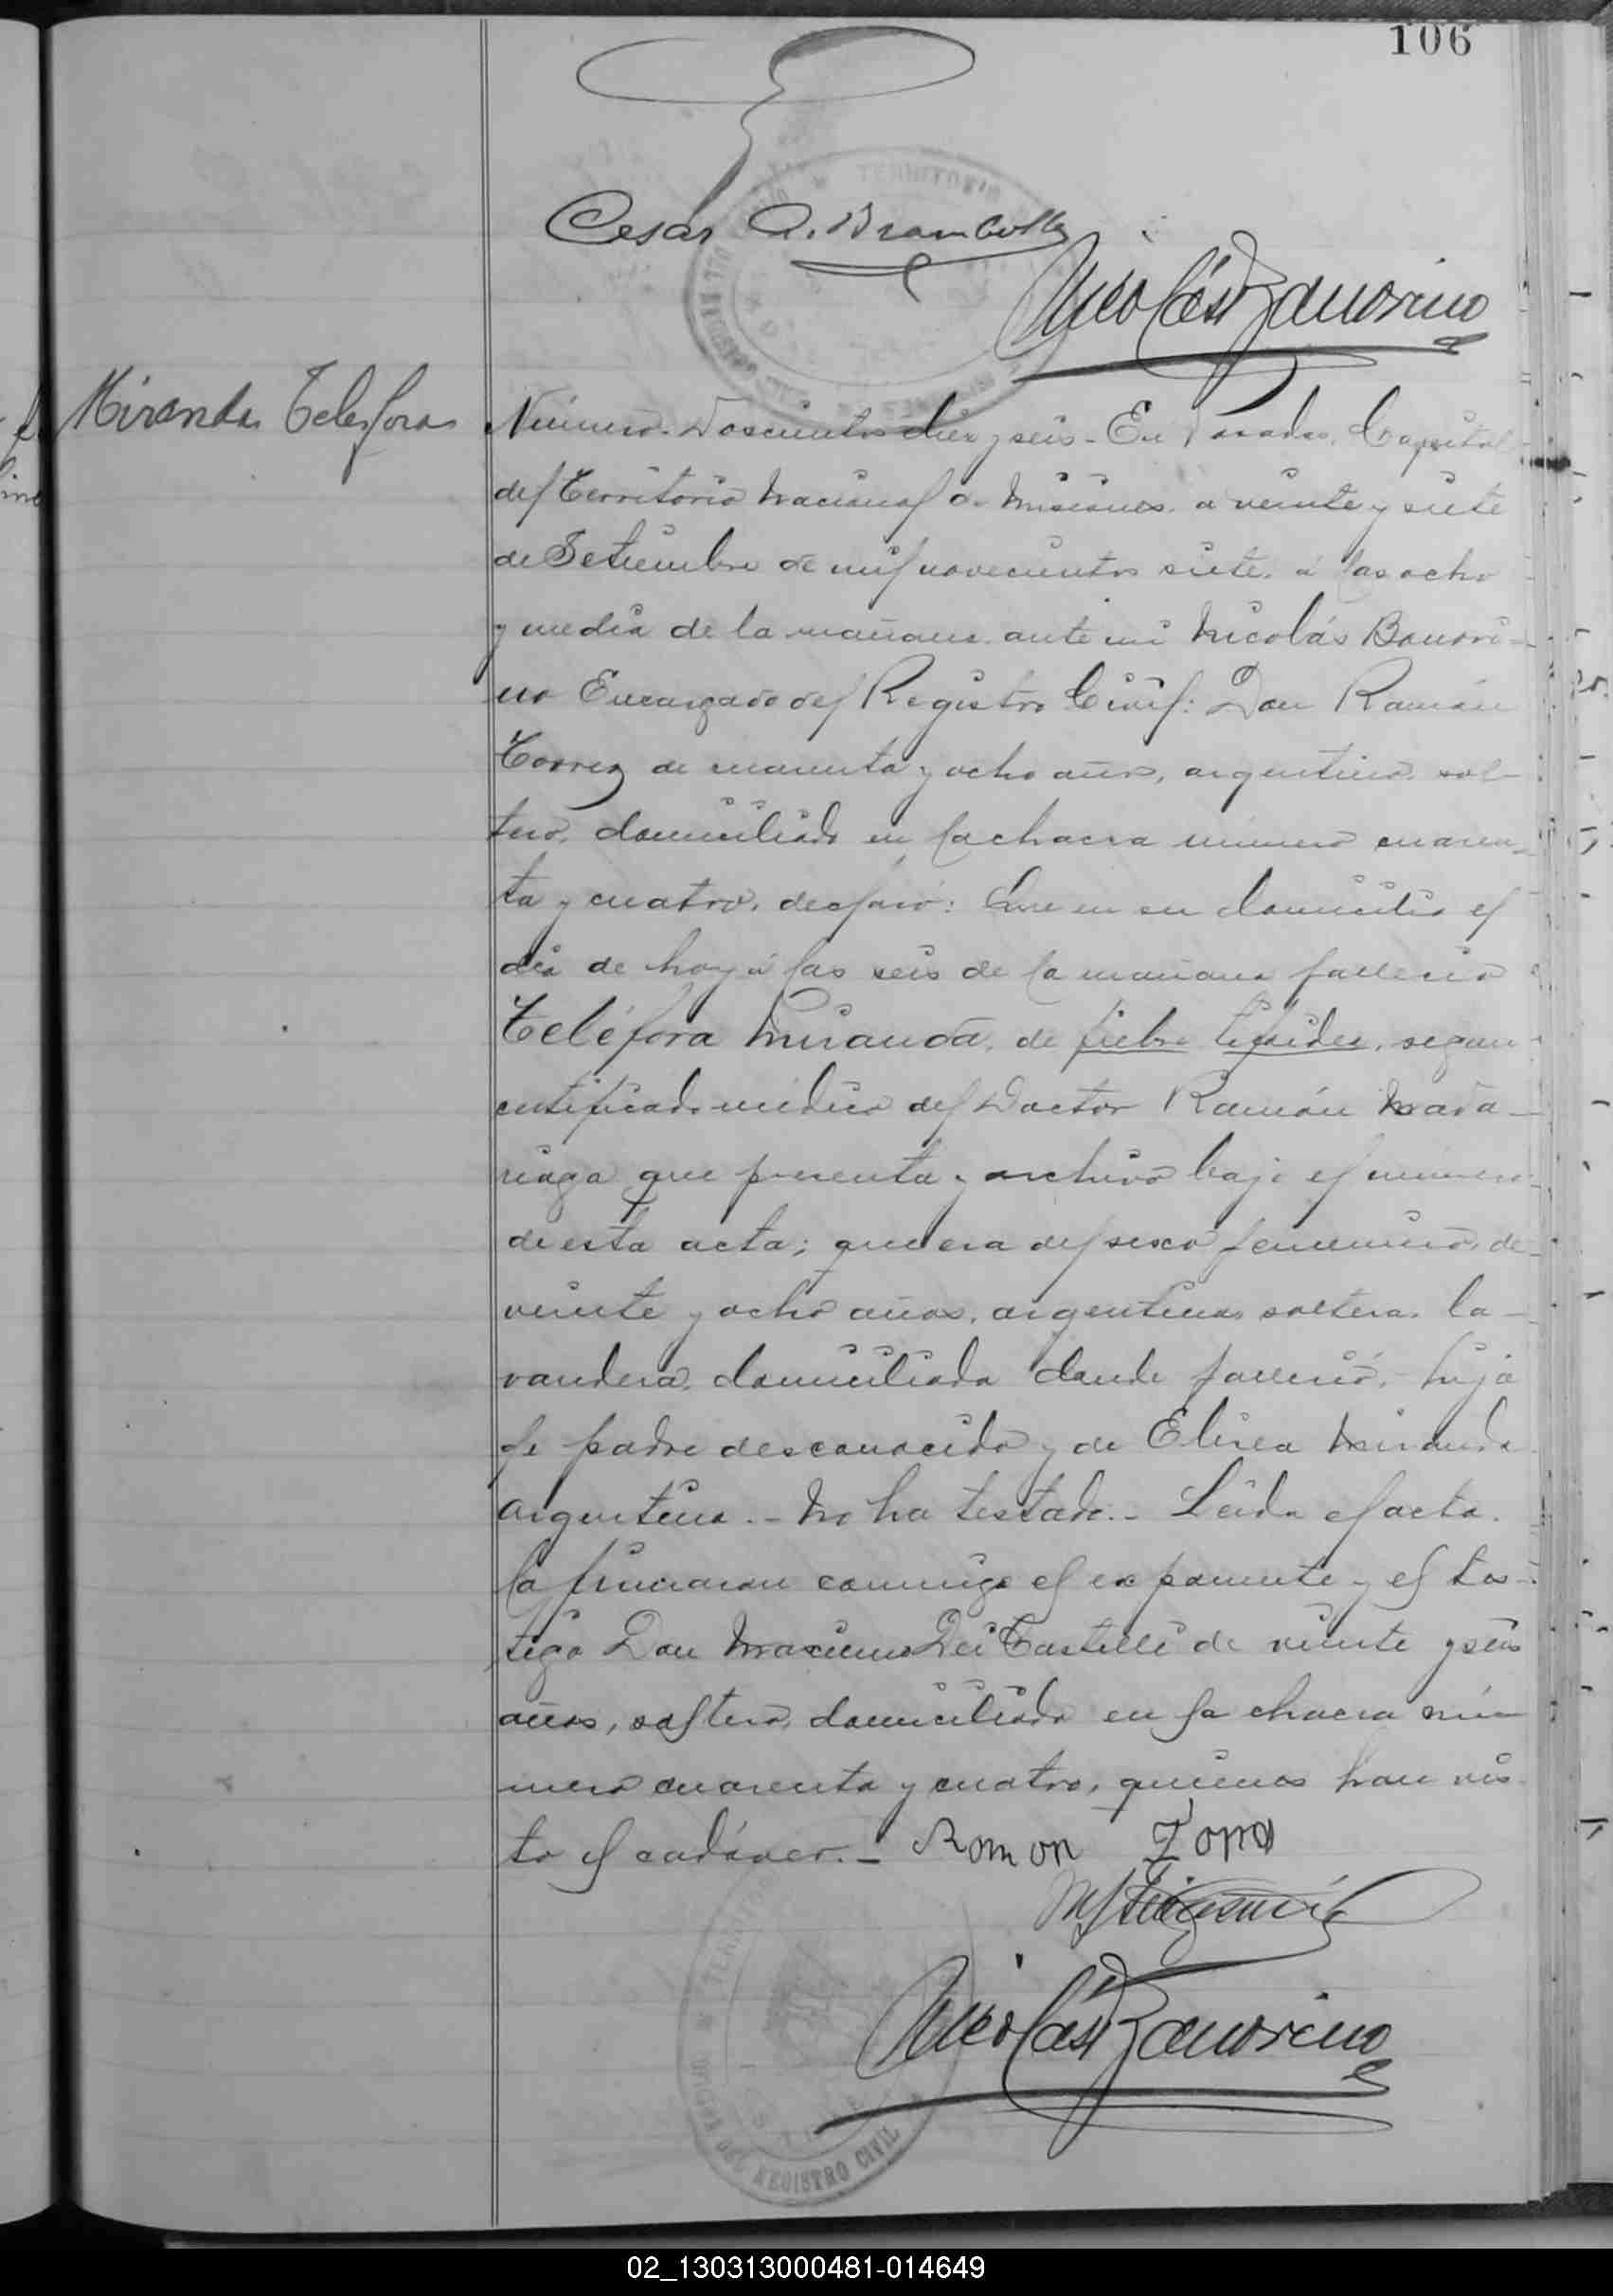 106
TERRITORIO
Cesar A. Brambilla
Nicolás Bonorino
Miranda Telesfora
Número Doscientos diez y seis - En Posadas, Capital
del Territorio Nacional de Misiones, a veinte y siete
de Setiembre de mil novecientos siete, á las ocho
y media de la mañana, ante mi Nicolás Bonori-
no Encargado del Registro Civil: Don Ramón
Torrez de cuarenta y ocho años, argentino, sol-
tero, domiciliado en la chacra número cuaren-
ta y cuatro, declaró: Que en su domicilio el
dia de hoy á las seis de la mañana falleció
Teléfora Miranda, de fiebre tifoidea, segun
certificado médico del Doctor Ramón Mada-
riaga que presenta y archivo bajo el número
de esta acta; que era del sexo femenino, de
veinte y ocho años, argentina, soltera, la-
vandera, domiciliada donde falleció, hija
de padre desconocido y de Elisea Miranda
argentina. - No ha testado. - Leida el acta,
la firmaron conmigo el exponente y el tes-
tigo Don Maximo Dei Castelli de veinte y seis
años, soltero, domiciliado en la chacra nú-
mero cuarenta y cuatro, quienes han vis-
to el cadáver. - Ramon Torres
Nicolás Bonorino
REGISTRO CIVIL
02_130313000481-014649